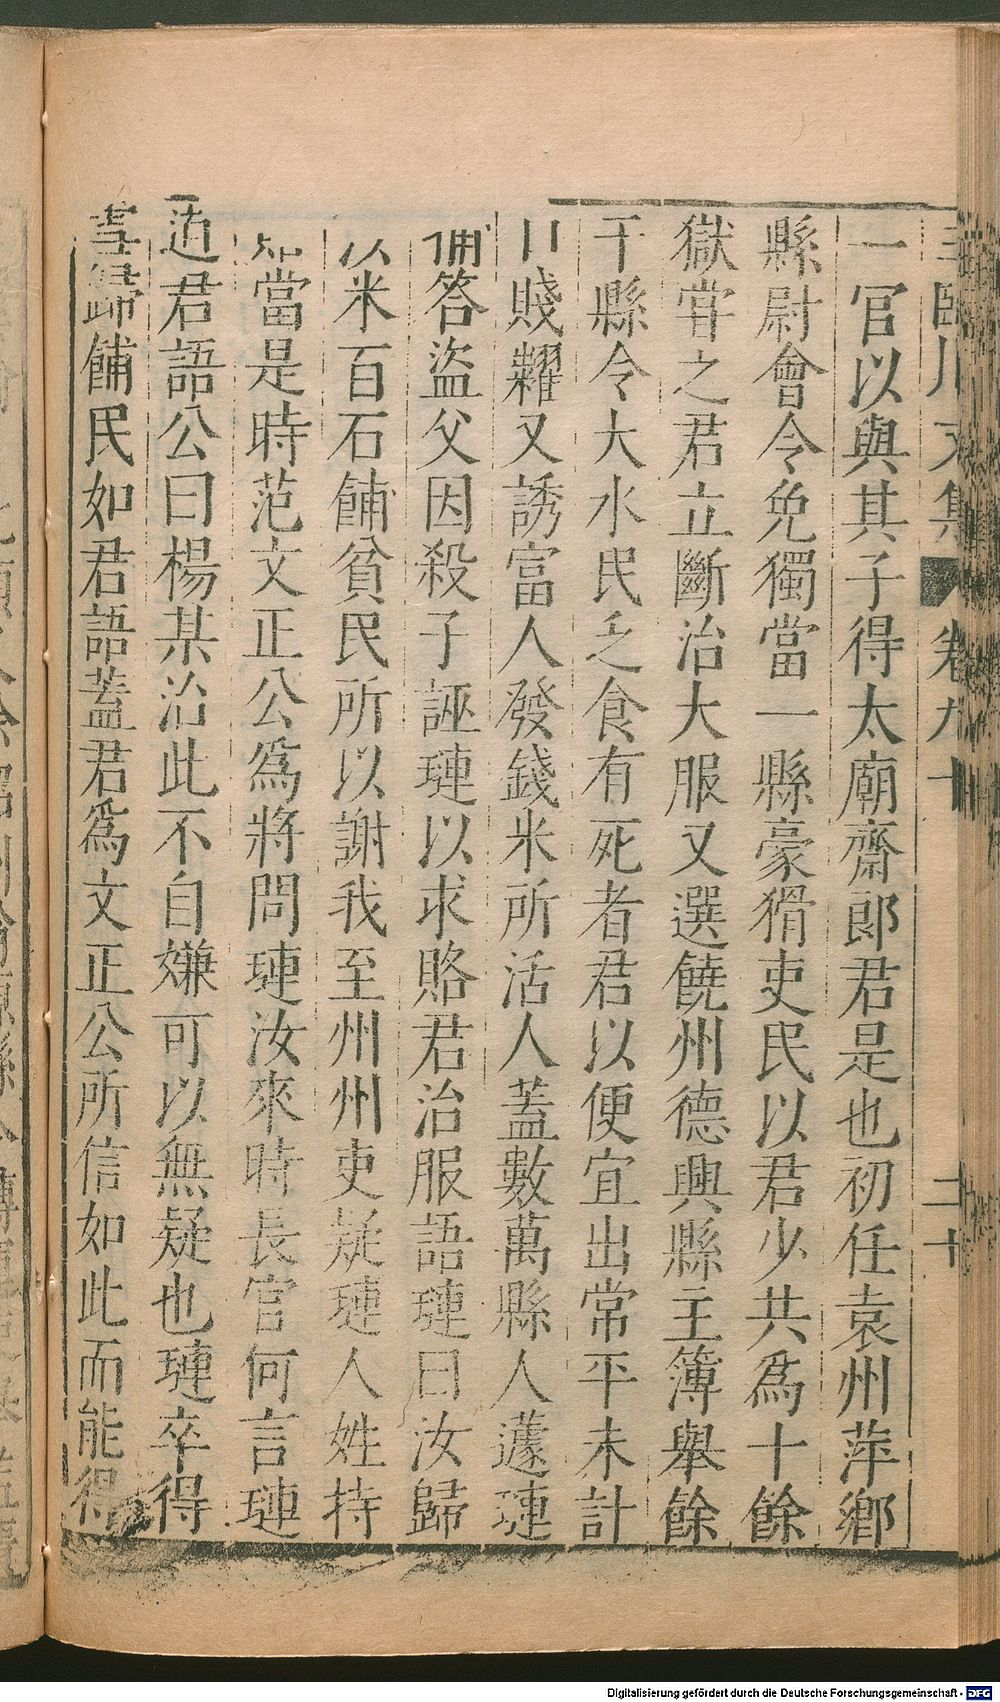 王臨川文集 卷九十 二十
一官以與其子得太廟齋郎君是也初任袁州萍鄉
縣尉會令免獨當一縣豪猾吏民以君少共為十餘
獄嘗之君立斷治大服又選饒州德興縣主簿舉餘
干縣令大水民乏食有死者君以便宜出常平未計
口賤糶又誘富人發錢米所活人蓋數萬縣人蘧璉
捕答盜父因殺子誣璉以求賂君治服語璉曰汝歸
以米百石餔貧民所以謝我至州州吏疑璉人姓持
知當是時范文正公為將問璉汝來時長官何言璉
道君語公曰楊某治此不自嫌可以無疑也璉卒得
書歸餔民如君語蓋君為文正公所信如此而能得
Digitalisierung gefördert durch die Deutsche Forschungsgemeinschaft - DFG